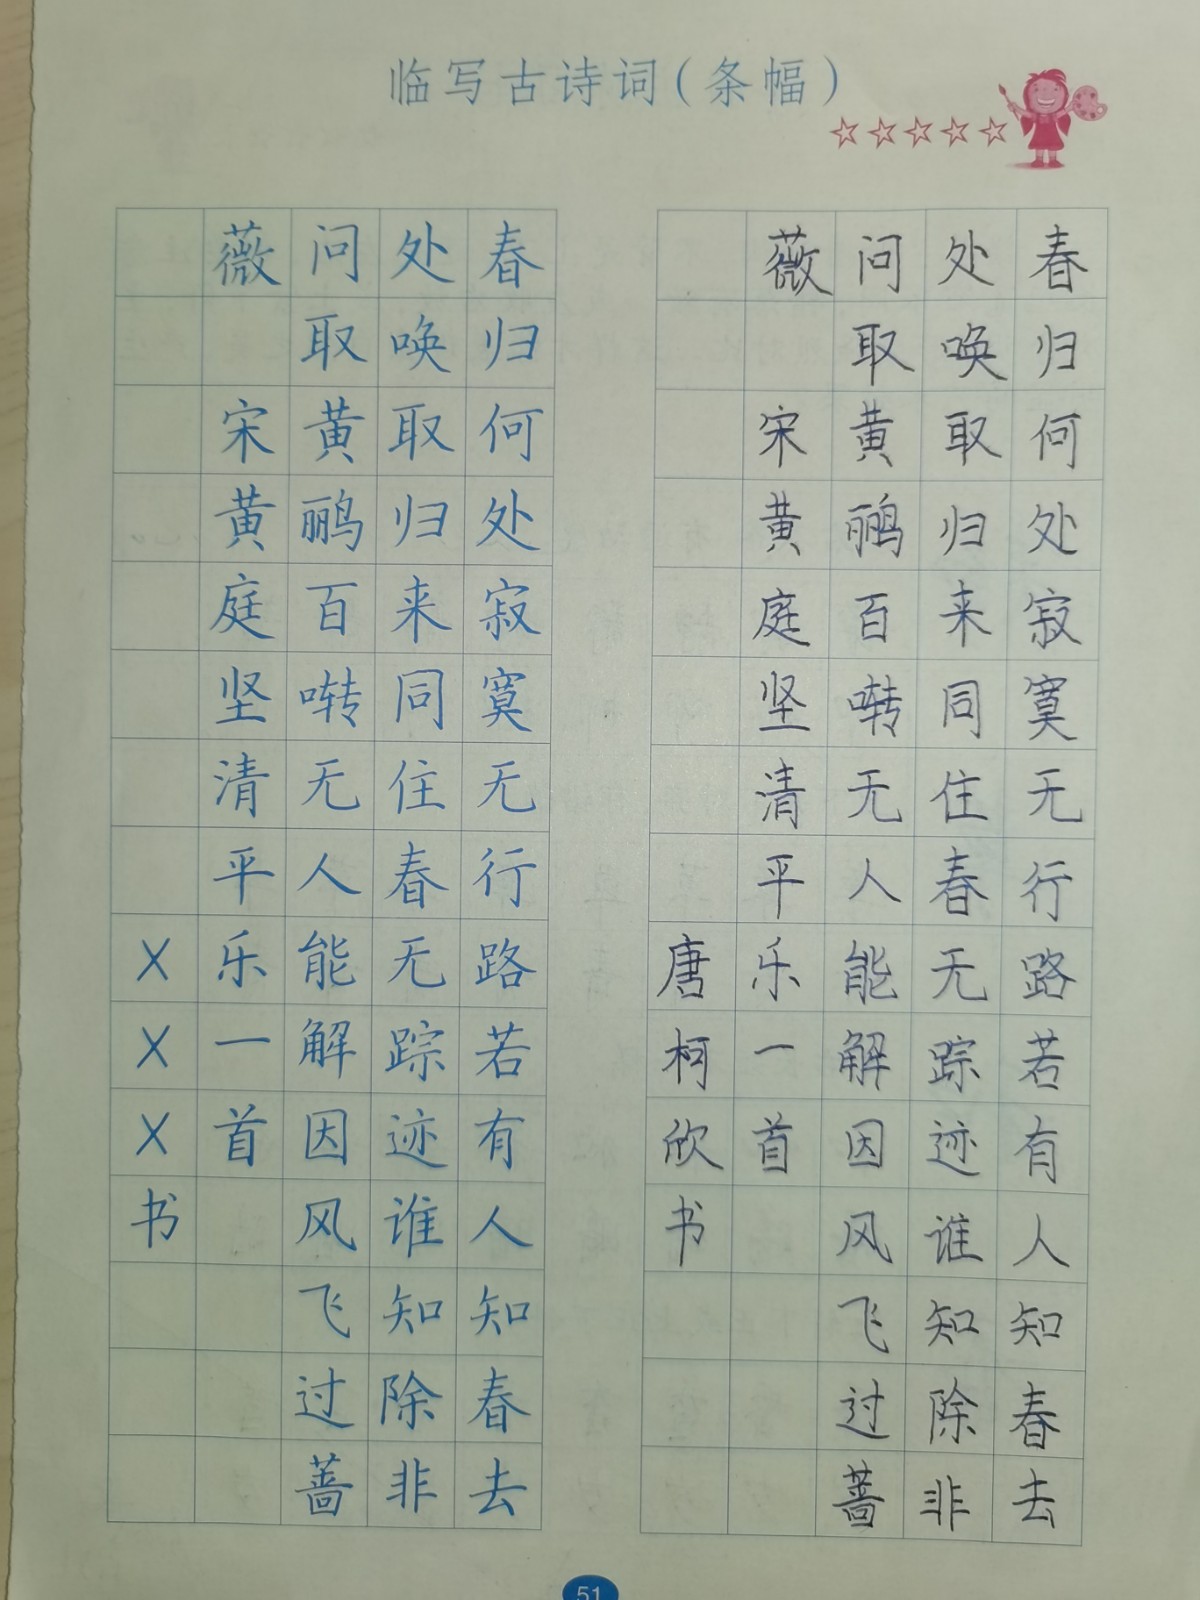 临写古诗词(条幅)
春归何处寂寞无行路若有人知春去
处唤取归来同住春无踪迹谁知除非
问取黄鹂百啭无人能解因风飞过蔷
薇 宋黄庭坚清平乐一首
XXX书
春归何处寂寞无行路若有人知春去
处唤取归来同住春无踪迹谁知除非
问取黄鹂百啭无人能解因风飞过蔷
薇 宋黄庭坚清平乐一首
唐柯欣书
51